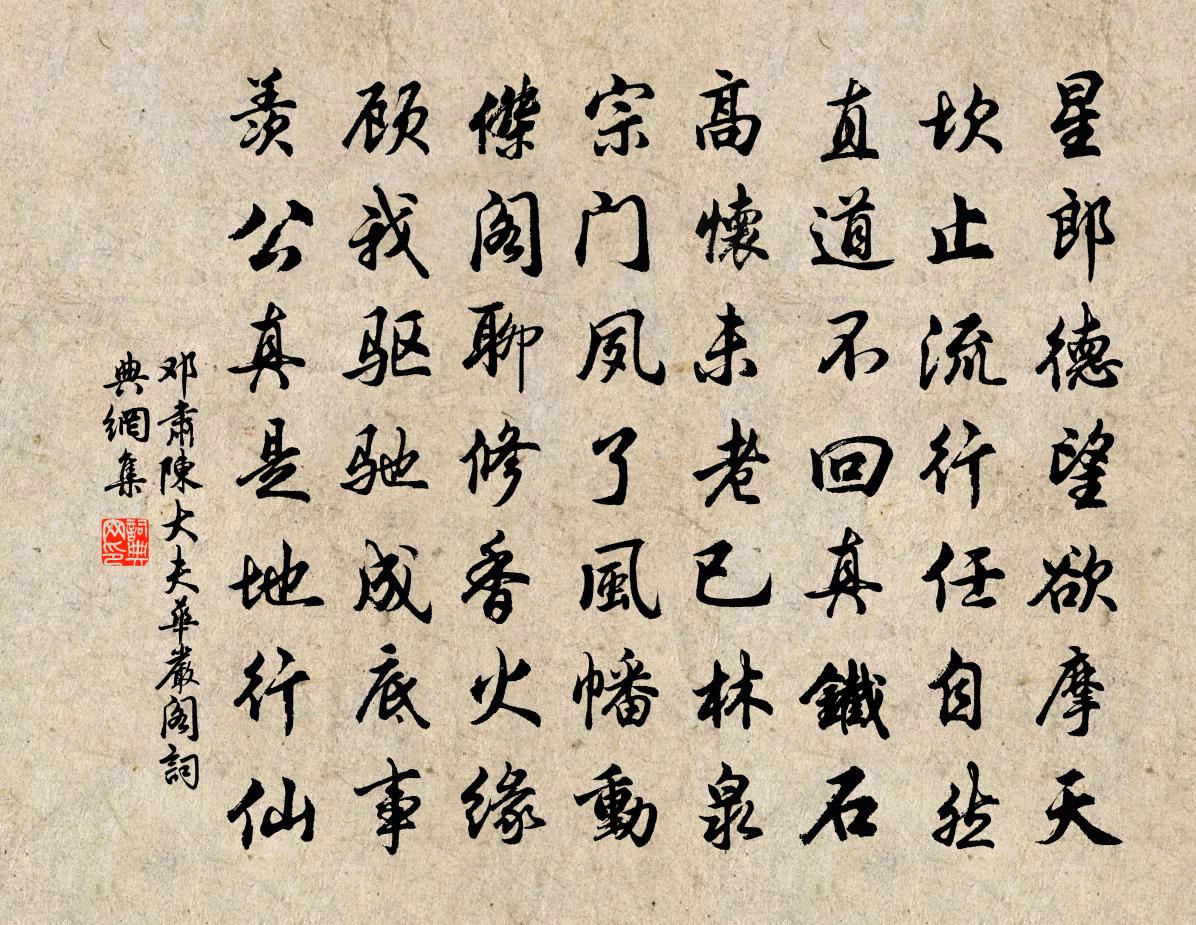 星郎德望欲摩天
坎止流行任自然
直道不回真鐵石
高懷未老已林泉
宗门夙了風幡動
傑阁聊修香火缘
顾我驱驰成底事
羨公真是地行仙
邓肃陳大夫華嚴阁詞
典網集
詞典网印